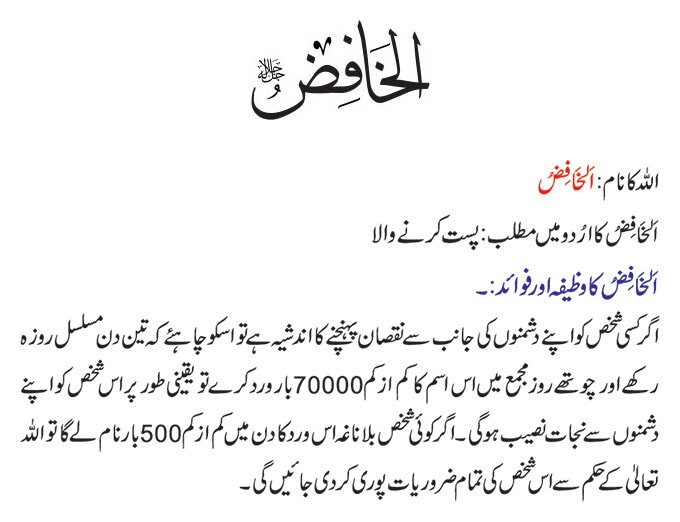 الخَافِضُ جل جلالہ
اللہ کا نام: اَلخَافِضُ
اَلخَافِضُ کا اُردو میں مطلب: پست کرنے والا
اَلخَافِضُ کا وظیفہ اور فوائد:۔
اگر کسی شخص کو اپنے دشمنوں کی جانب سے نقصان پہنچنے کا اندشیہ ہے تو اسکو چاہئے کہ تین دن مسلسل روزہ
رکھے اور چوتھے روز مجمع میں اس اسم کا کم از کم 70000 بار ورد کرے تو یقینی طور پر اس شخص کو اپنے
دشمنوں سے نجات نصیب ہوگی۔ اگر کوئی شخص بلا ناغہ اس ورد کا دن میں کم از کم 500 بار نام لے گا تو اللہ
تعالیٰ کے حکم سے اس شخص کی تمام ضروریات پوری کر دی جائیں گی۔